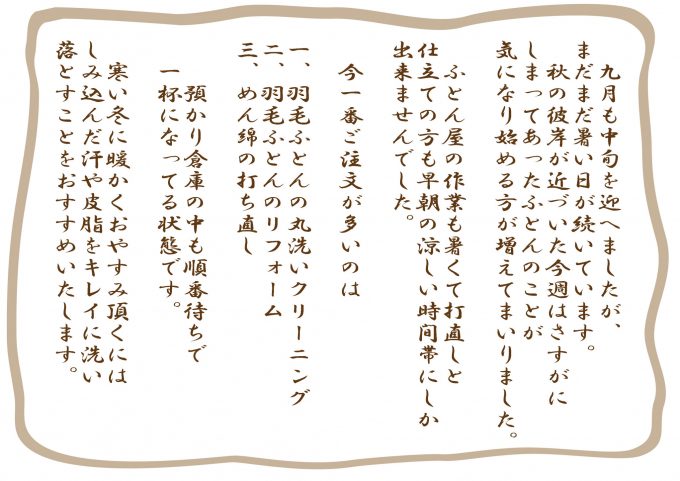 九月も中旬を迎へましたが、
まだまだ暑い日が続いています。
秋の彼岸が近づいた今週はさすがに
しまってあったふとんのことが
気になり始める方が増えてまいりました。
ふとん屋の作業も暑くて打直しと
仕立ての方も早朝の涼しい時間帯にしか
出来ませんでした。
今一番ご注文が多いのは
一、羽毛ふとんの丸洗いクリーニング
二、羽毛ふとんのリフォーム
三、めん綿の打ち直し
預かり倉庫の中も順番待ちで
一杯になってる状態です。
寒い冬に暖かくおやすみ頂くには
しみ込んだ汗や皮脂をキレイに洗い
落とすことをおすすめいたします。